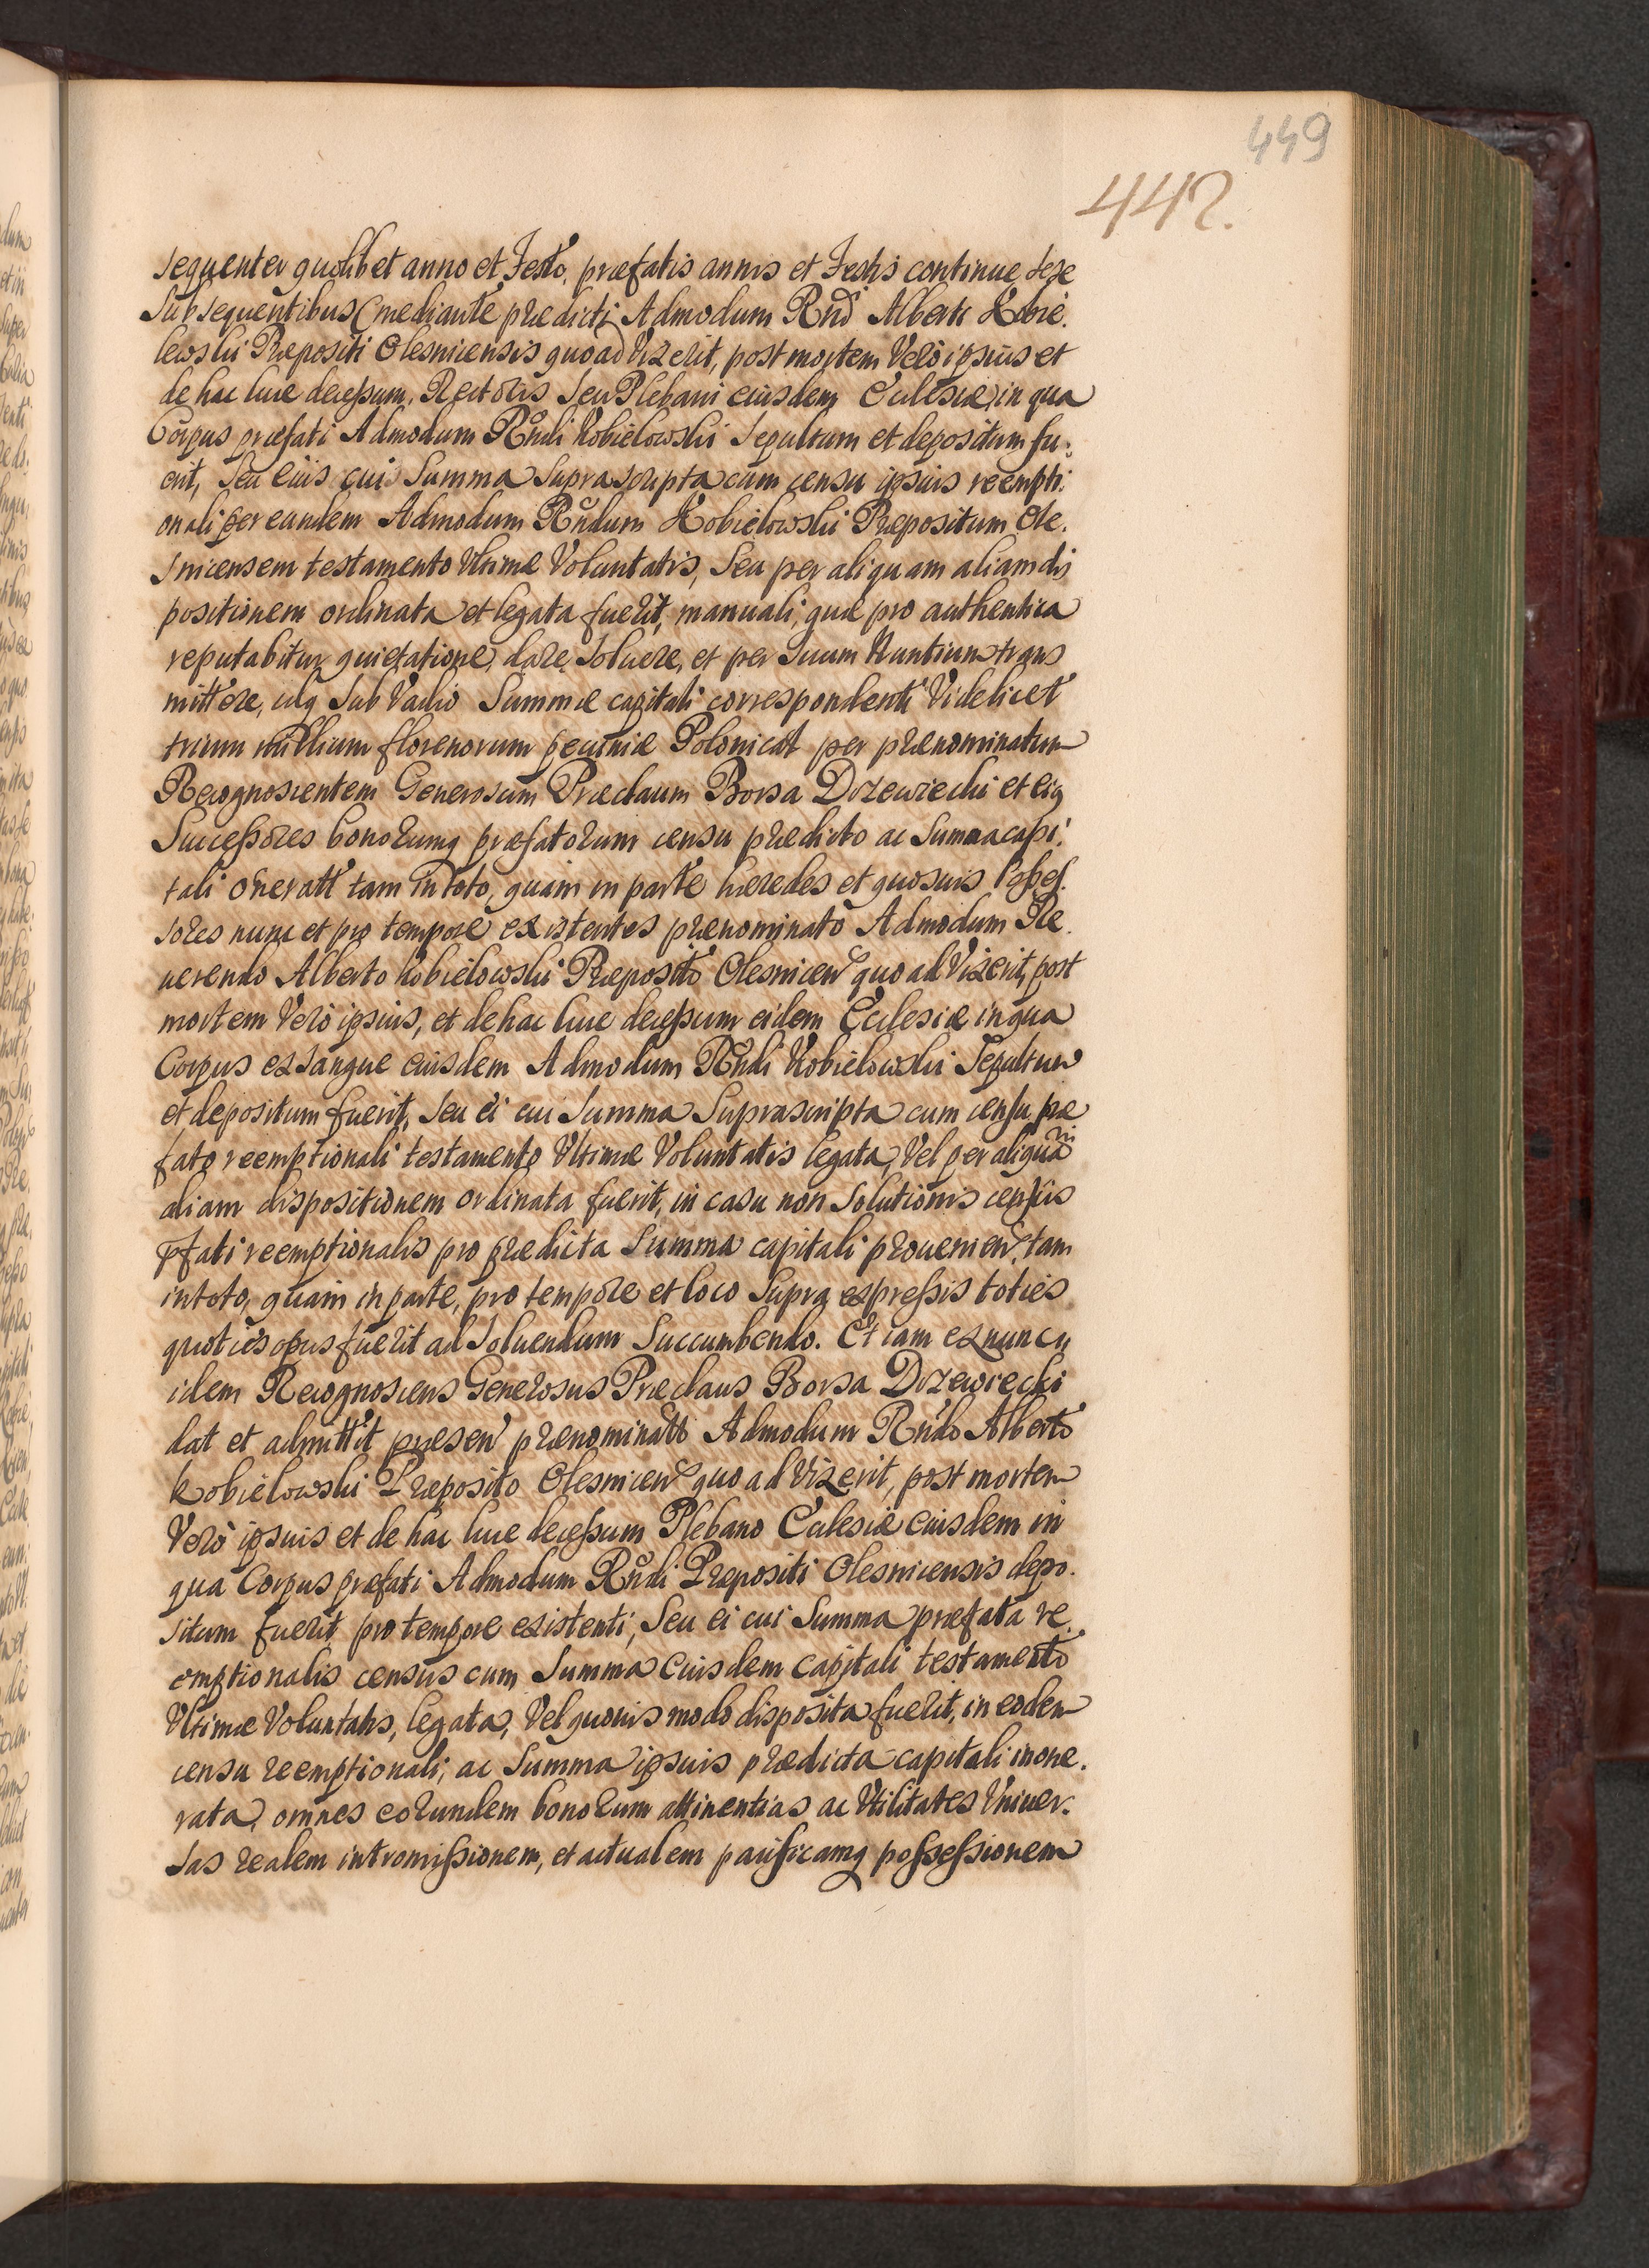 449
442.
sequenter quolibet anno et Festo, præfatis annis et Festis continue sese
subsequentibus (mediante prædicti Admodum Rndi Alberti Kobie.
lowski Præpositi Olesnicensis quoad Vixerit, post mortem Verò ipsius et
de hac luce decessum, Rectoris seu Plebani eiusdem Ecclesiæ, in qua
Corpus præfati Admodum Rñdi Kobielowski Sepultum et depositum fu:
erit, seu eius cui Summa suprascripta cum censu ipsius reempti:
onali per eundem Admodum Rñdum Kobielowski Præpositum Ole.
snicensem testamento Vltimæ Voluntatis, seu per aliquam aliam dis
positionem ordinata et legata fuerit, manuali, quæ pro authentica
reputabitur quietatione, dare, soluere, et per suum Nuntium trans
mittere, idq sub Vadio Summæ capitali correspondenti Videlicet
trium millium florenorum pecuniæ Polonicał per prænominatum
Recognoscentem Generosum Præclaum Borsa Drzewiecki et eiq
Successores bonorumq præfatorum censu prædicto ac Summa capi:
tali oneratt tam in toto, quam in parte hæredes et quosuis Posses.
sores nunc et pro tempore existentes prænominato Admodum Re.
uerendo Alberto Kobielowski Præposito Olesnicen quoad Vixerit, post
mortem Verò ipsius, et de hac luce decessum eidem Ecclesiæ in qua
Corpus exsangue eiusdem Admodum Rñdi Kobielowski Sepultum
et depositum fuerit, seu ei cui Summa Suprascripta cum censu præ
fato reemptionali testamento Vltimæ Voluntatis legata, Vel per aliquam
aliam dispositionem ordinata fuerit, in casu non Solutionis censûs
pfati reemptionalis pro prædicta Summa capitali prouenien, tam
in toto, quam in parte, pro tempore et loco supra expressis toties
quoties opus fuerit ad soluendum Succumbendo. Et iam ex nunc
idem Recognoscens Generosus Præclaus Borsa Drzewiecki
dat et admittit præsen prænominatto Admodum Rñdo Alberto
Kobielowski Præposito Olesnicen quoad Vixerit, post mortem
Verò ipsius et de hac luce decessum Plebano Ecclesiæ eiusdem in
qua Corpus præfati Admodum Rñdi Præpositi Olesnicensis depo.
situm fuerit pro tempore existenti, seu ei cui Summa præfata re.
emptionalis census cum Summa eiusdem capitali testamento
Vltimæ Voluntatis, legata, Vel quouis modo disposita fuerit, in eodem
censu reemptionali, ac Summa ipsius prædicta capitali inone.
rata, omnes eorundem bonorum attinentias ac Vtilitates Vniuer.
sas realem intromissionem, et actualem pacificamq possessionem